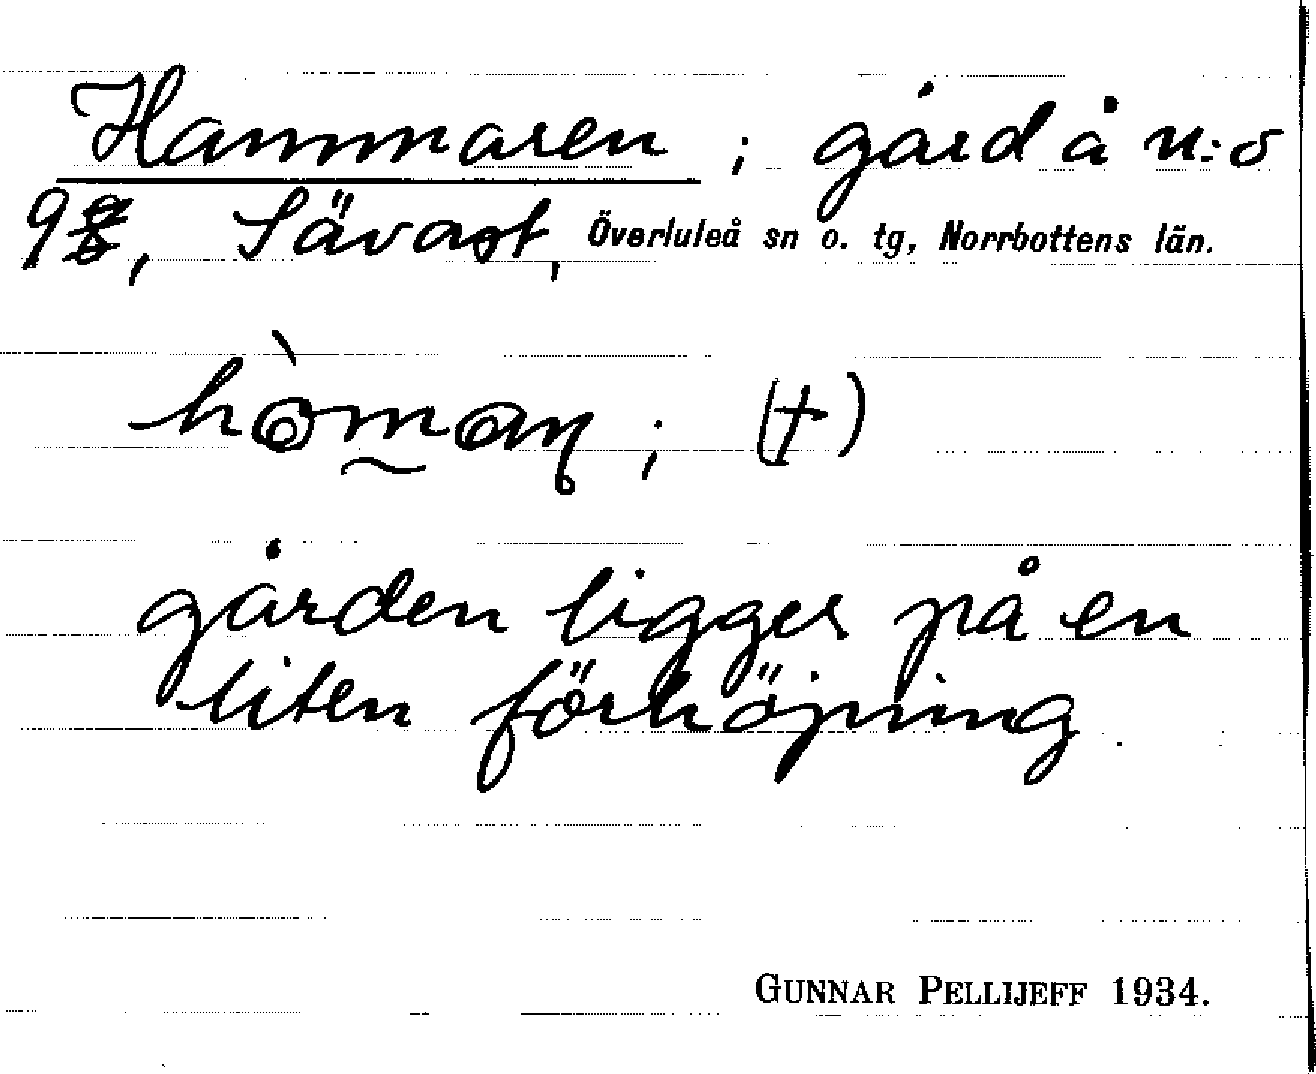 Hammaren ; gård å n:o
98, Sävast, Överluleå sn o. tg, Norrbottens län.
; (†)
gården ligger på en
liten förhöjning.
GUNNAR PELLIJEFF 1934.